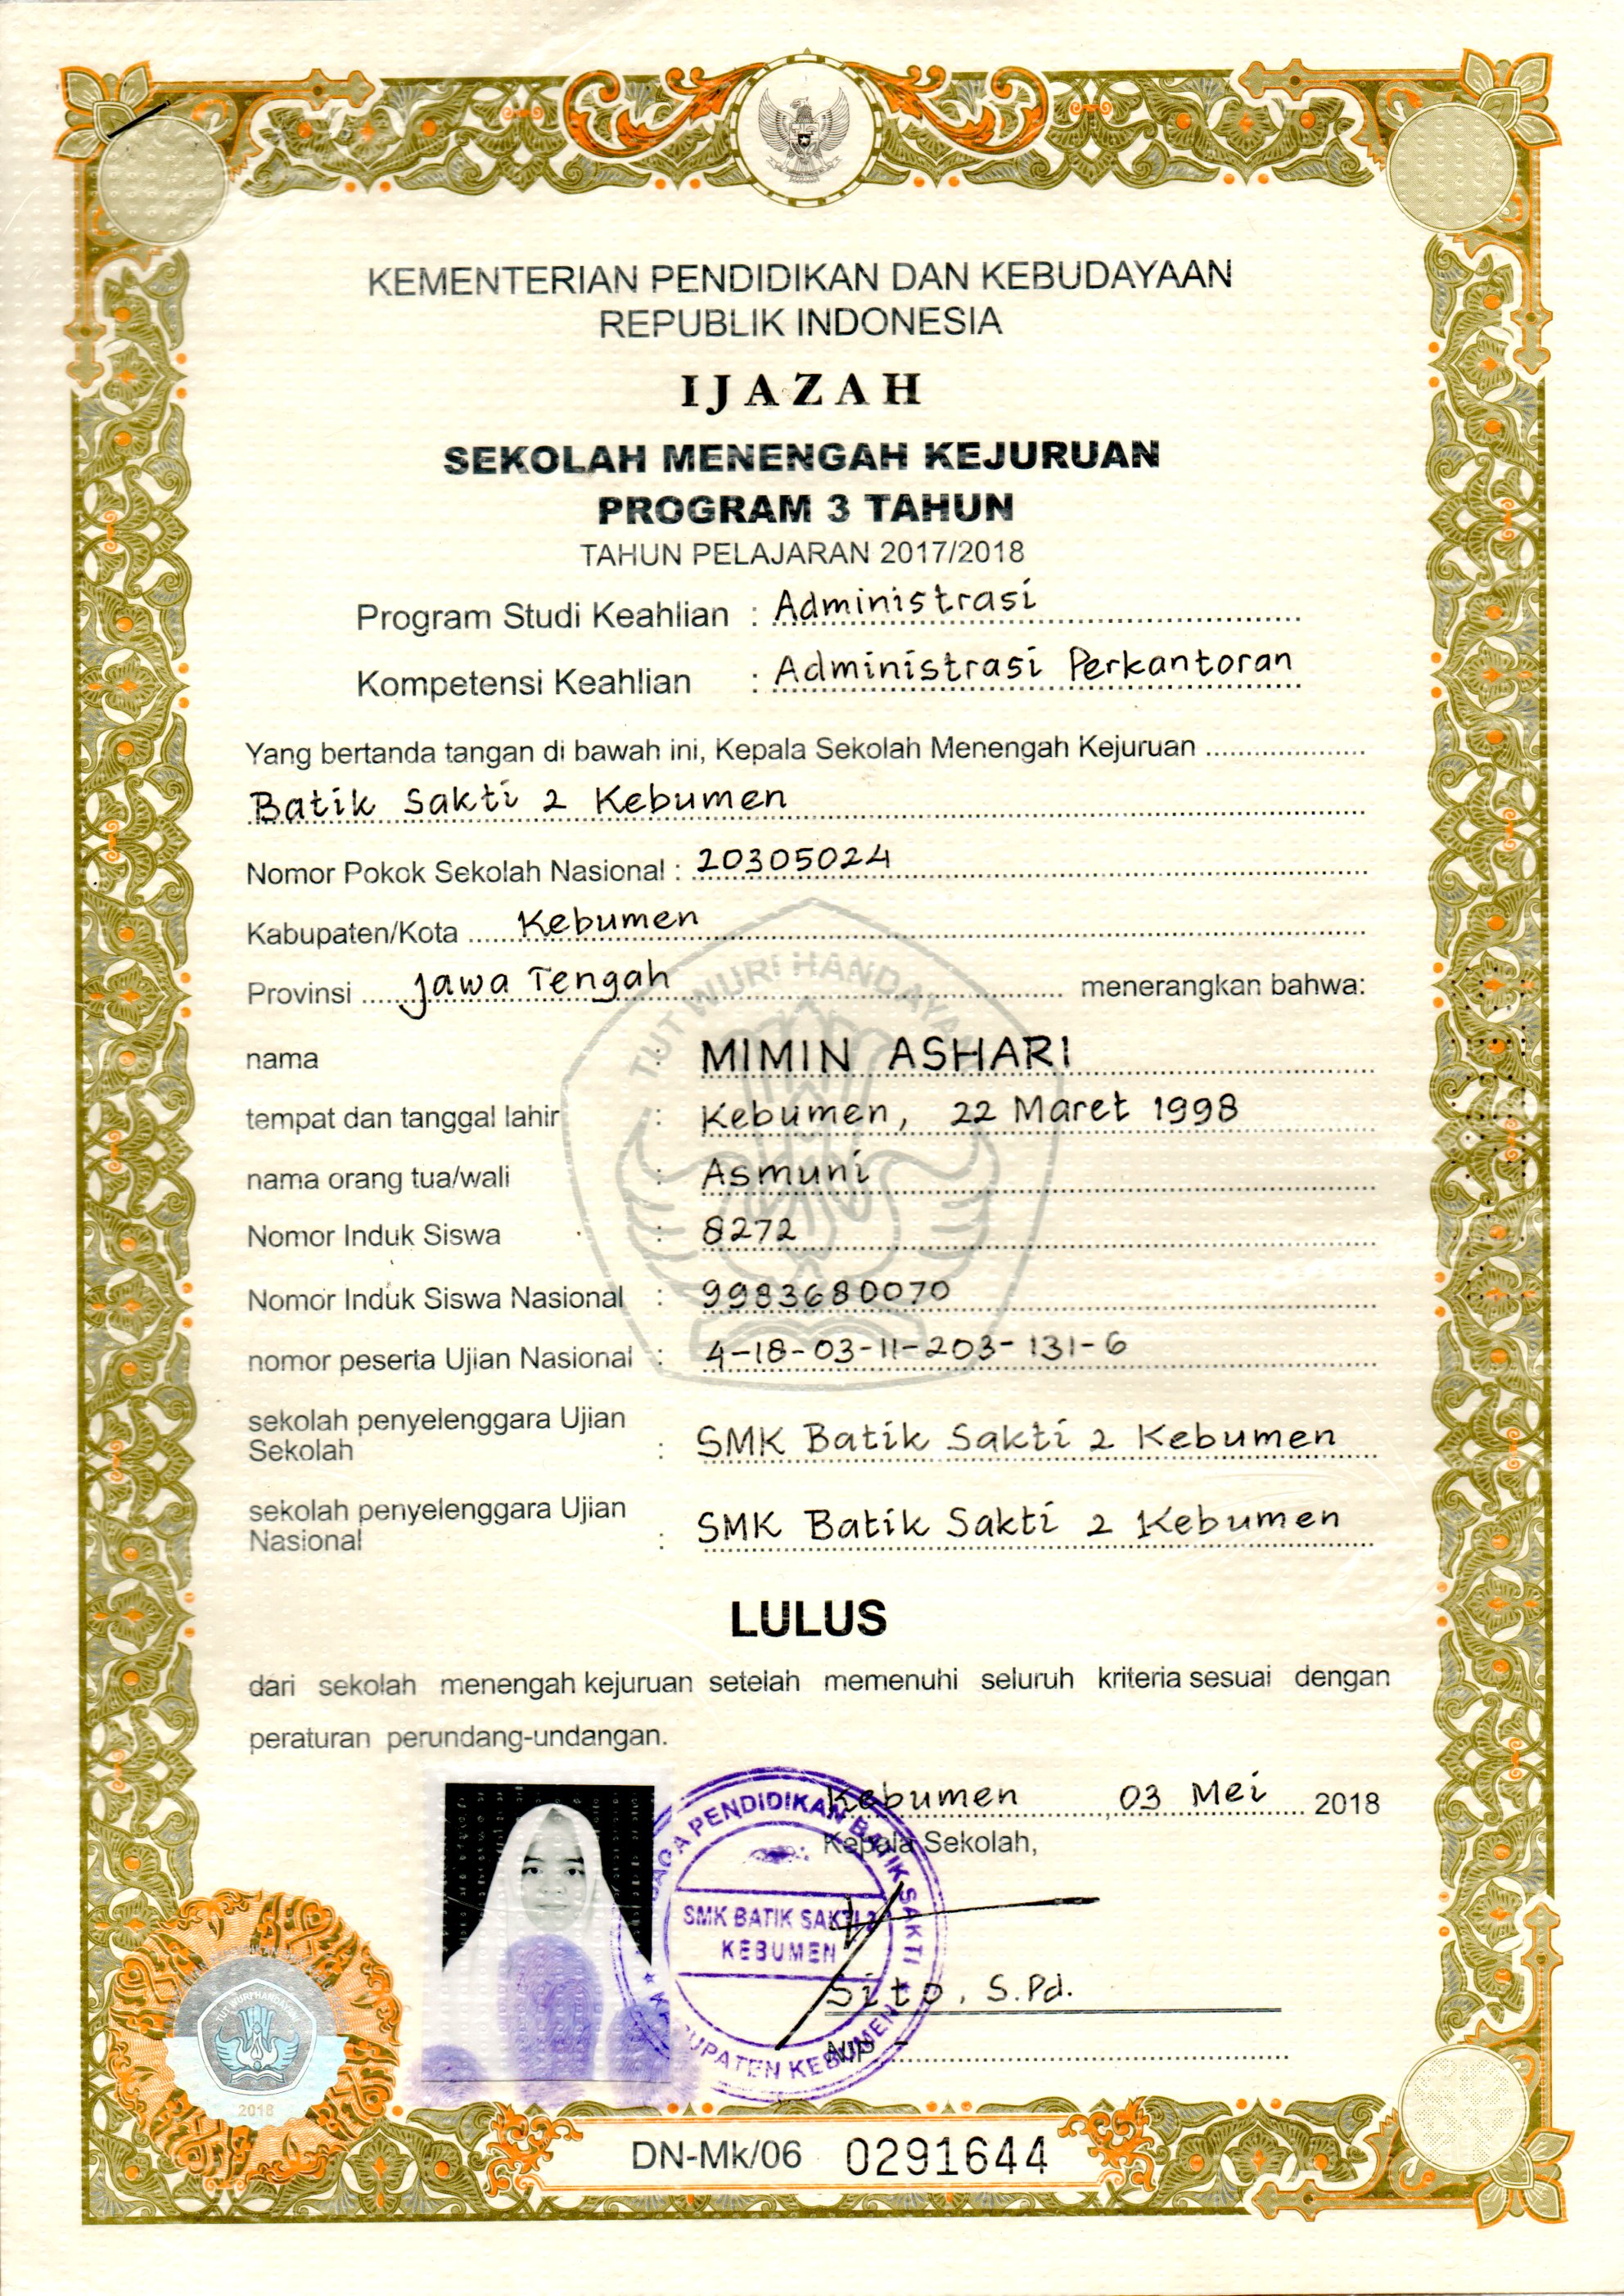 KEMENTERIAN PENDIDIKAN DAN KEBUDAYAAN
REPUBLIK INDONESIA
IJAZAH
SEKOLAH MENENGAH KEJURUAN
PROGRAM 3 TAHUN
TAHUN PELAJARAN 2017/2018
Program Studi Keahlian : Administrasi
Kompetensi Keahlian : Administrasi Perkantoran
Yang bertanda tangan di bawah ini, Kepala Sekolah Menengah Kejuruan
Batik Sakti 2 Kebumen
Nomor Pokok Sekolah Nasional : 20305024
Kabupaten/Kota Kebumen
Provinsi Jawa Tengah menerangkan bahwa:
TUT WURI HANDAYANI
nama : MIMIN ASHARI
tempat dan tanggal lahir : Kebumen, 22 Maret 1998
nama orang tua/wali : Asmuni
Nomor Induk Siswa : 8272
Nomor Induk Siswa Nasional : 9983680070
nomor peserta Ujian Nasional : 4-18-03-11-203-131-6
sekolah penyelenggara Ujian
Sekolah : SMK Batik Sakti 2 Kebumen
sekolah penyelenggara Ujian
Nasional : SMK Batik Sakti 2 Kebumen
LULUS
dari sekolah menengah kejuruan setelah memenuhi seluruh kriteria sesuai dengan
peraturan perundang-undangan.
Kebumen, 03 Mei 2018
Kepala Sekolah,
PENDIDIKAN BATIK SAKTI
SMK BATIK SAKTI 2
KEBUMEN
KABUPATEN KEBUMEN
Sito, S.Pd.
NIP -
TUT WURI HANDAYANI
2018
DN-Mk/06 0291644